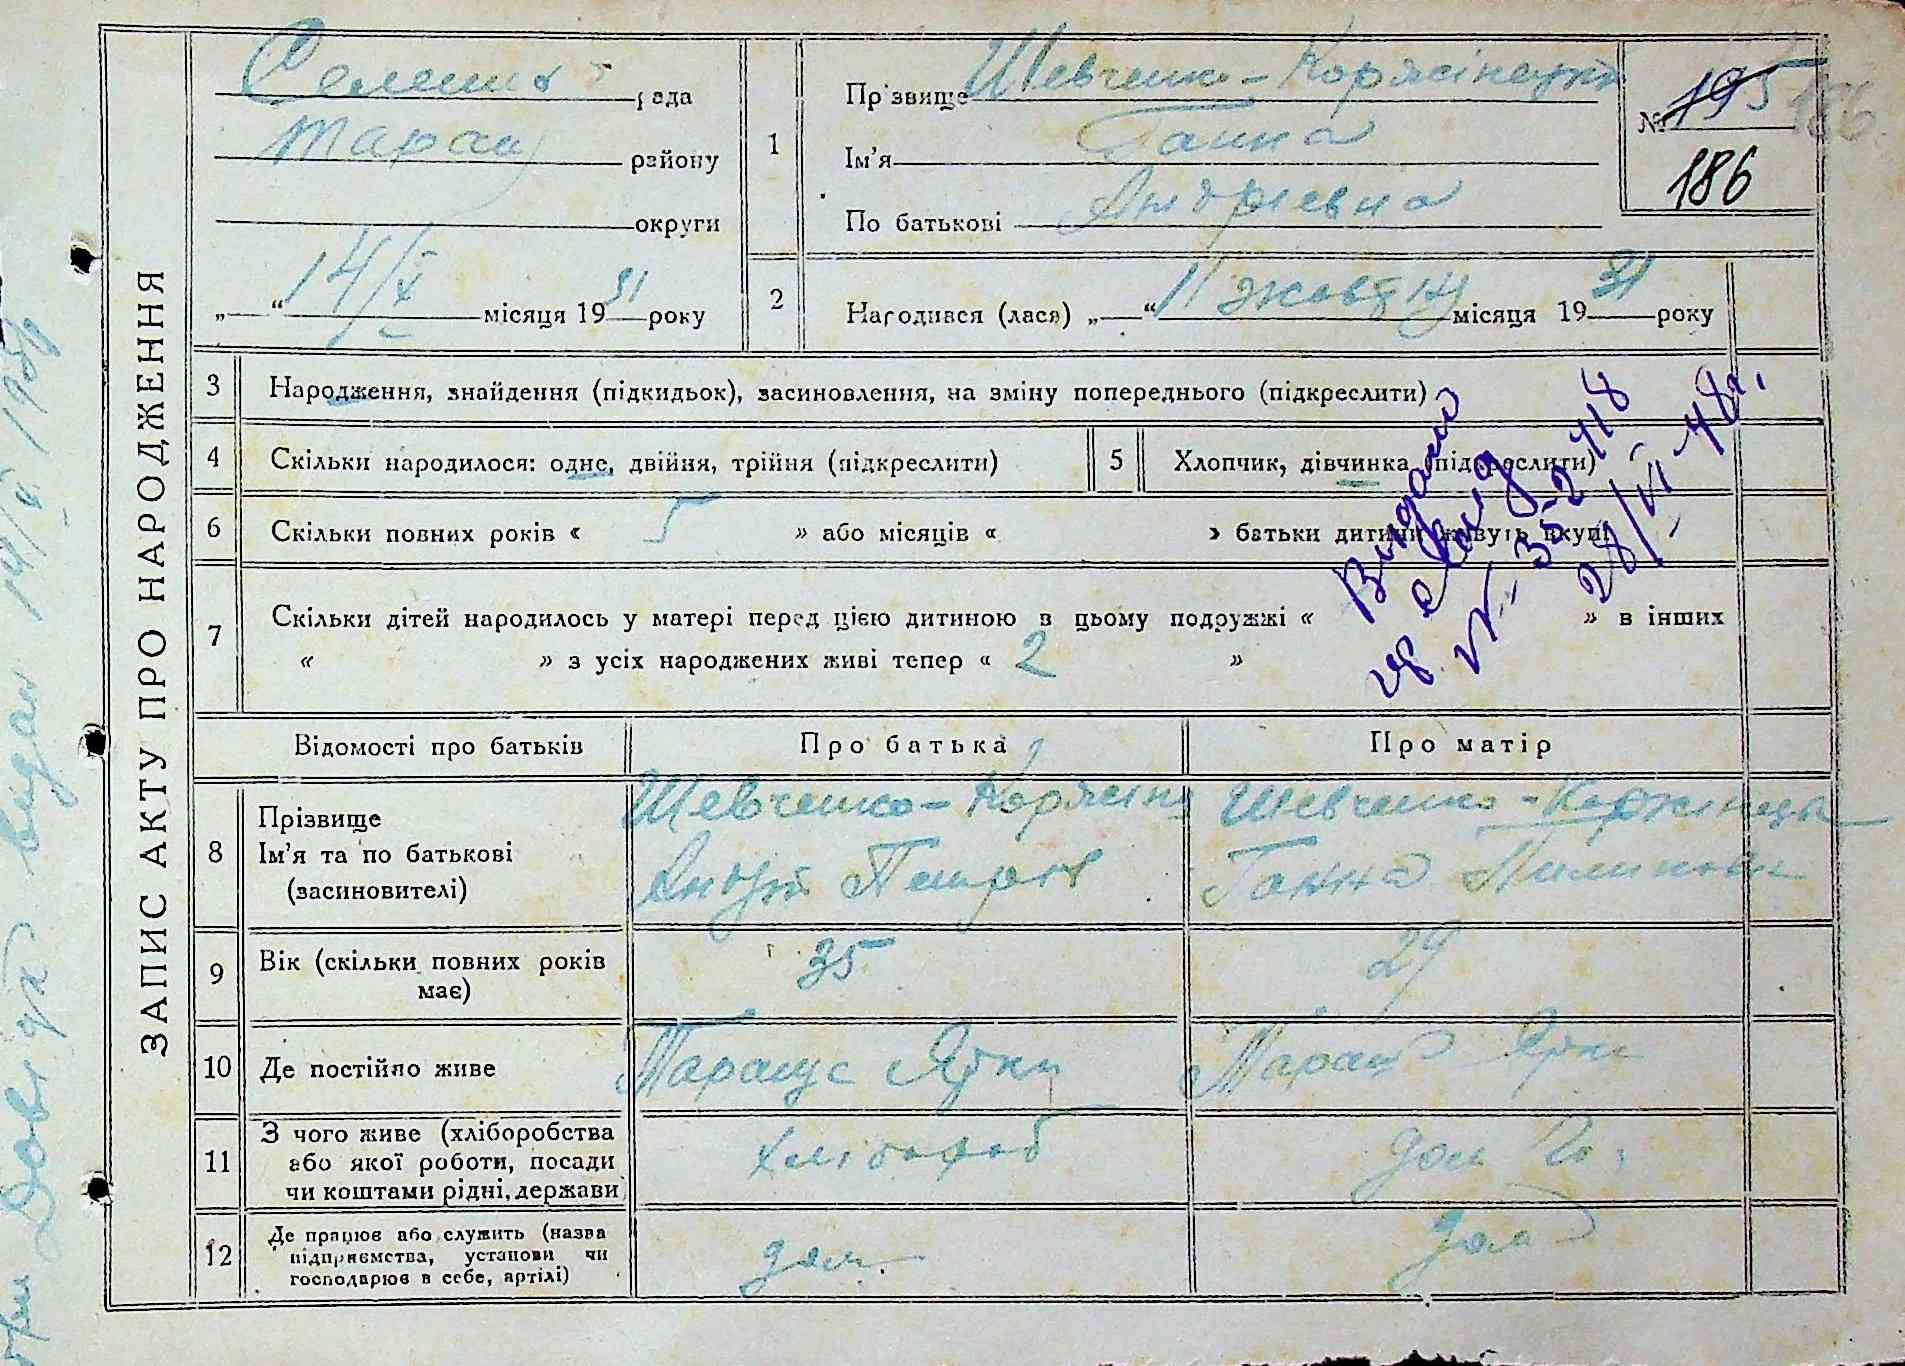 ЗАПИС АКТУ ПРО НАРОДЖЕННЯ
Селищ рада
Таращ району
округи
„—“ 14/X місяця 1931 року
1
Прізвище Шевченко-Корясінецька
Ім’я Ганна
По батькові Андріевна
№ 195 186
186
2
Народився (лася) „—“ 11 жовтня місяця 1931 року
3 Народження, знайдення (підкидьок), засиновлення, на зміну попереднього (підкреслити)
4 Скільки народилося: одне, двійня, трійня (підкреслити)
5 Хлопчик, дівчинка (підкреслити)
6 Скільки повних років « 5 » або місяців « » батьки дитини живуть вкупі
7 Скільки дітей народилось у матері перед цією дитиною в цьому подружжі « » в інших
« » з усіх народжених живі тепер « 2 »
Видано
свид
28/VI-48г.
Відомості про батьків
Про батька
Про матір
8
Прізвище
Ім’я та по батькові
(засиновителі)
Шевченко-Корясін
Андрій Петров
Шевченко-
Ганна Пилиповн
9 Вік (скільки повних років
має)
35
29
10 Де постійно живе
Ятки
Таращ Ятки
11 З чого живе (хліборобства
або якої роботи, посади
чи коштами рідні, держави
хлібороб
дом
12 Де працює або служить (назва
підприємства, установи чи
господарює в себе, артілі)
дом
дома
видан 14/X 193